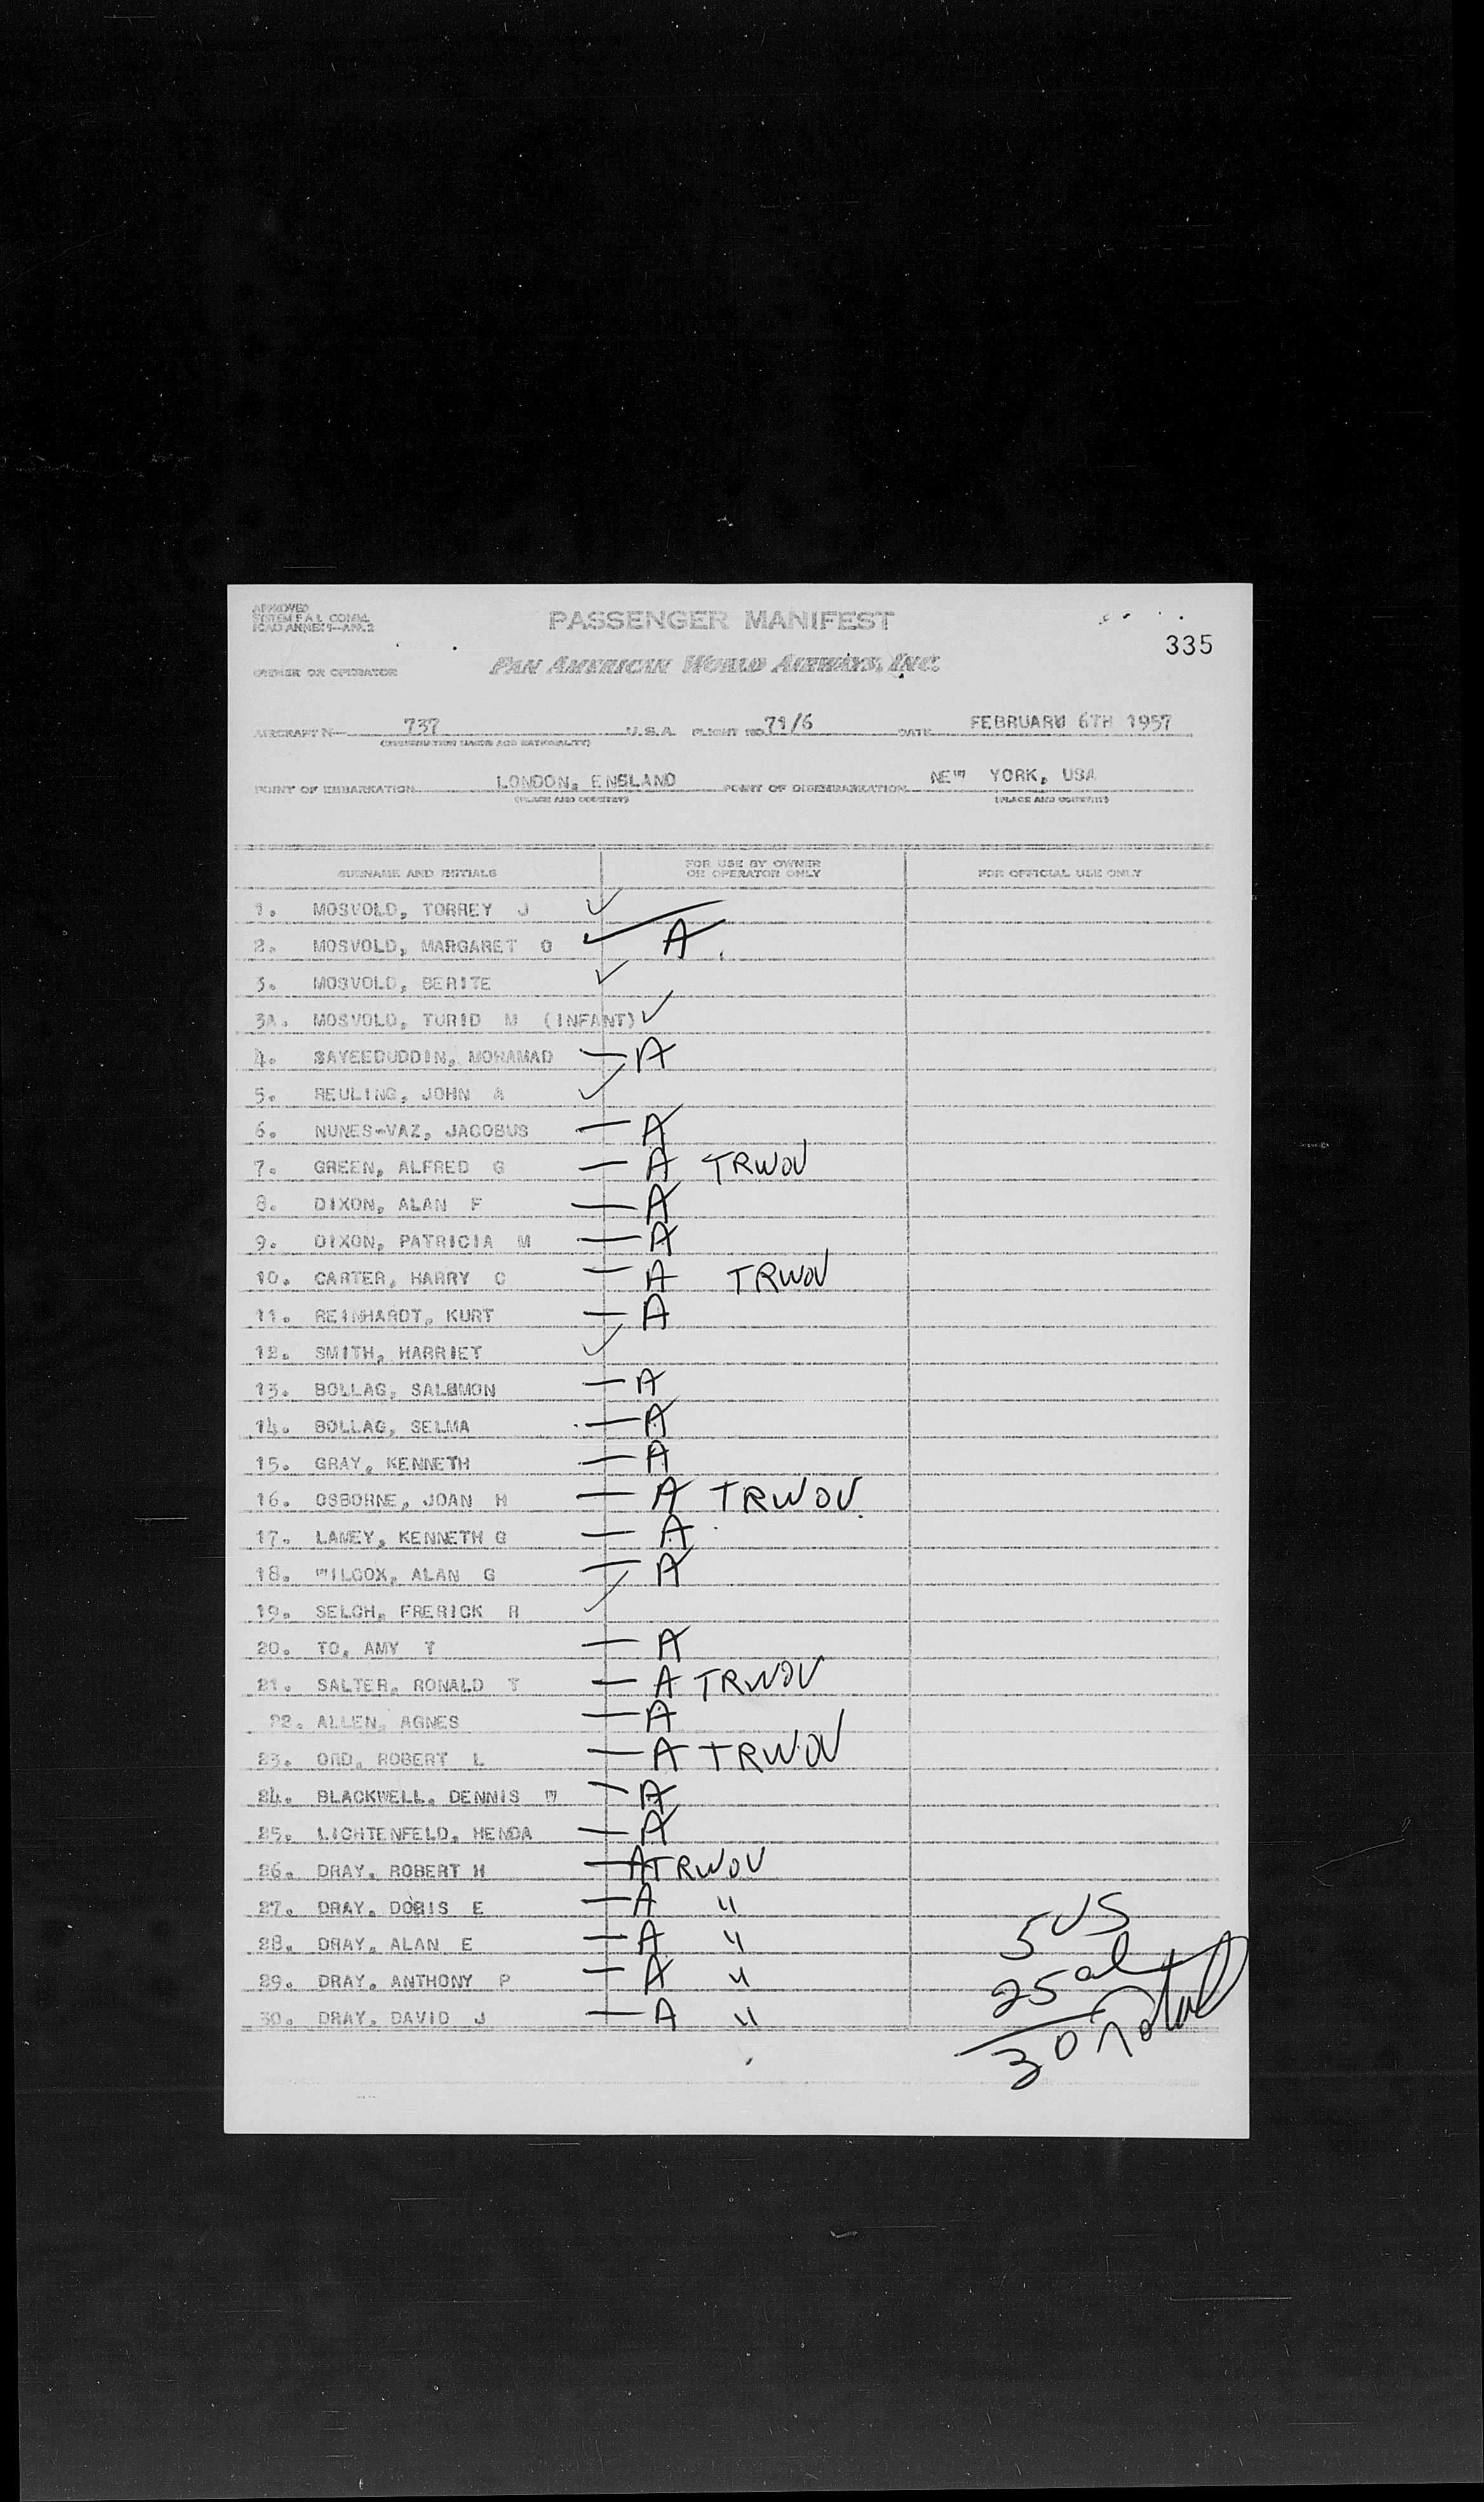 APPROVED
SYSTEM F.A.L. COMM.
ICAO ANNEX 9—APP. 2
PASSENGER MANIFEST
335
OWNER OR OPERATOR
PAN AMERICAN WORLD AIRWAYS, INC.
AIRCRAFT N— 737 U.S.A. FLIGHT NO. 71/6 DATE FEBRUARY 6TH 1957
(REGISTRATION MARKS AND NATIONALITY)
POINT OF EMBARKATION LONDON, ENGLAND POINT OF DISEMBARKATION NEW YORK, USA
(PLACE AND COUNTRY) (PLACE AND COUNTRY)
SURNAME AND INITIALS FOR USE BY OWNER OR OPERATOR ONLY FOR OFFICIAL USE ONLY
1. MOSVOLD, TORREY J ✓
2. MOSVOLD, MARGARET O ✓ A
3. MOSVOLD, BERITE ✓
3A. MOSVOLD, TURID M (INFANT) ✓
4. SAYEEDUDDIN, MOHAMAD — A
5. REULING, JOHN A ✓
6. NUNES-VAZ, JACOBUS — A
7. GREEN, ALFRED G — A TRWOV
8. DIXON, ALAN F — A
9. DIXON, PATRICIA M — A
10. CARTER, HARRY C — A TRWOV
11. REINHARDT, KURT — A
12. SMITH, HARRIET ✓
13. BOLLAG, SALOMON — A
14. BOLLAG, SELMA — A
15. GRAY, KENNETH — A
16. OSBORNE, JOAN H — A TRWOV
17. LAMEY, KENNETH G — A
18. WILCOX, ALAN G — A
19. SELCH, FRERICK R ✓
20. TO, AMY T — A
21. SALTER, RONALD T — A TRWOV
22. ALLEN, AGNES — A
23. ORD, ROBERT L — A TRWOV
24. BLACKWELL, DENNIS W — A
25. LICHTENFELD, HENDA — A
26. DRAY, ROBERT H — A TRWOV
27. DRAY, DORIS E — A "
28. DRAY, ALAN E — A "
29. DRAY, ANTHONY P — A "
30. DRAY, DAVID J — A "
5 US
25 al
30 Total